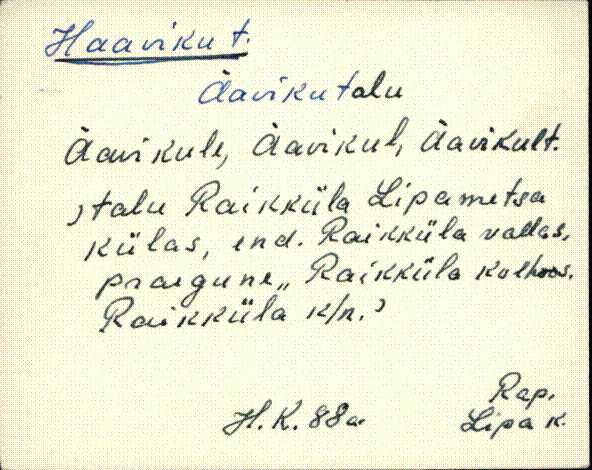 Haaviku t.
Äavikutalu
Äavikule, Äavikul, Äavikult.
, talu Raikküla Lipametsa
külas, end. Raikküla vallas,
praegune „Raikküla kolhoos.
Raikküla k/n.ʾ
H.K. 88a.
Rap.
Lipa k.